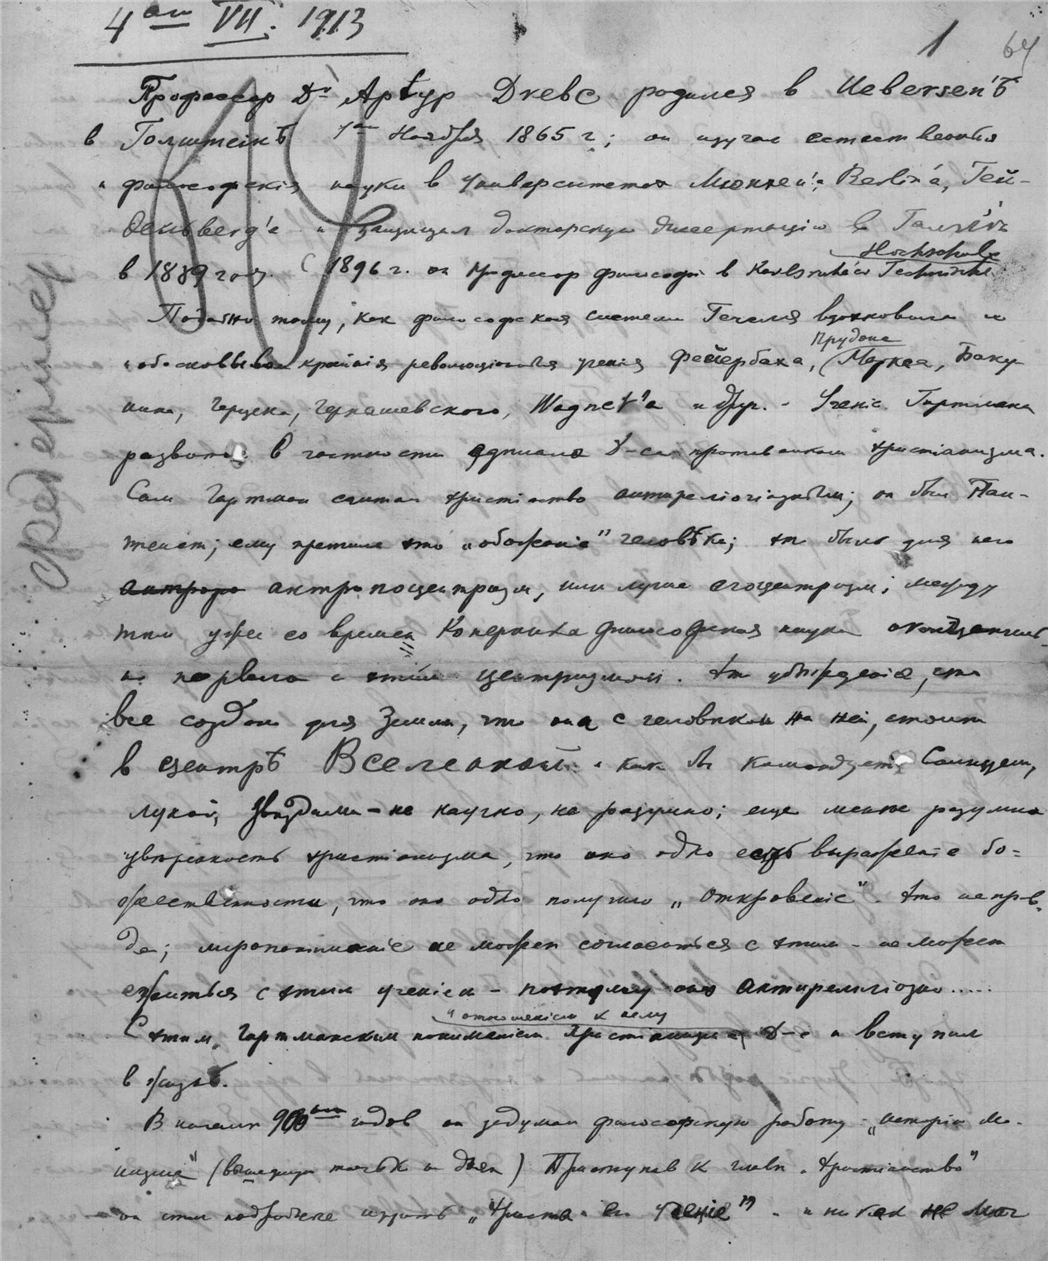 4го VII. 1913
1 64
Профессор Dr Артур Древс родился в Uetersen'ѣ
в Голштейнѣ 1го Ноября 1865 г; он изучал естественныя
и философскія науки в Университетах Мюнхен'а, Berlin'а, Гей-
дельberg'а и защищал докторскую диссертацію в Галле
Hochschule
в 1889 году. С 1896 г. он профессор философіи в Karlsruhe Technische
Подобно тому, как философская система Гегеля вдохновила и
Прудона
обосновывала крайнія революціонныя ученія Фейербаха, Маркса, Баку-
нина, Герцена, Чернышевского, Wagner'а и друг. - Ученіе Гартмана
в частности сделало Д-са противником христіанизма.
Сам Гартман считал христіанство антирелигіозным; он был Пан-
теист; ему претило это „обоженіе" человѣка; это было для него
антропо антропоцентризм, или лучше эгоцентризм; между
тем уже со времен Коперника философская наука
порвала с этим центризмом. Это убѣжденіе, что
все создано для Земли, что она с человѣком на ней, стоит
в центрѣ Вселенной и как бы командует Солнцем,
луной, Звѣздами - не научно, не разумно; еще менѣе разумна
увѣренность христіанизма, что оно одно есть выраженіе бо-
жественности, что оно одно получило „откровеніе". Это неправ-
да; міропониманіе не может согласиться с этим - не может
с этим ученіем - поэтому оно антирелигіозно.....
и отношеніем к нему
С этим, Гартманским пониманіем Христіанизма Д-с и вступил
в жизнь.
В начале 900ых годов он задумал философскую работу „исторія мо-
низма" (вышедшую ) Приступив к главѣ „христіанство"
он стал подробнее изучать „Христа и его ученіе" и никак не мог
Фредерикс